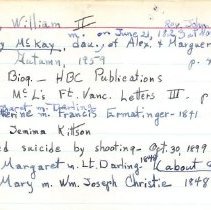 William II
m. on June 21, 1823 at
Rev. John
McKay, dau. of Alex. & Marguer
Autumn, 1959 p.
Biog. - HBC Publications
Mc L's Ft. Vanc. Letters III p.
m. Darling
erine m. Francis Ermatinger - 1841
Jemima Kittson
ed suicide by shooting - Oct. 30, 1899
Margaret m. Lt. Darling 1849 (about
Mary m. Wm. Joseph Christie 1848